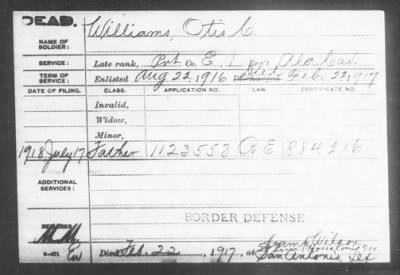 DEAD.
Williams, Otis C.
NAME OF
SOLDIER:
SERVICE: Late rank, Pvt Co. E, 1 Reg't Ala Cav.
TERM OF
SERVICE:
Enlisted Aug 22, 1916 Died Feb. 22, 1917
DATE OF FILING. CLASS. APPLICATION NO. LAW. CERTIFICATE NO.
Invalid,
Widow,
Minor,
1918 July 17 Father 1123553 884216
ADDITIONAL
SERVICES:
BORDER DEFENSE
REMARKS
Died Feb. 22, 1917, at
San Antonio, Tex